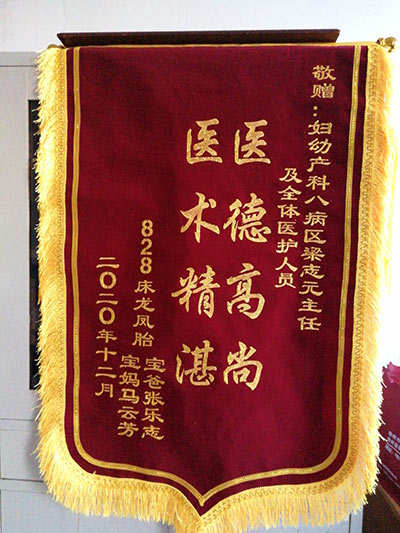 敬赠：妇幼产科八病区梁志元主任
及全体医护人员
医德高尚
医术精湛
828床龙凤胎 宝爸张乐志
宝妈马云芳
二〇二〇年十二月